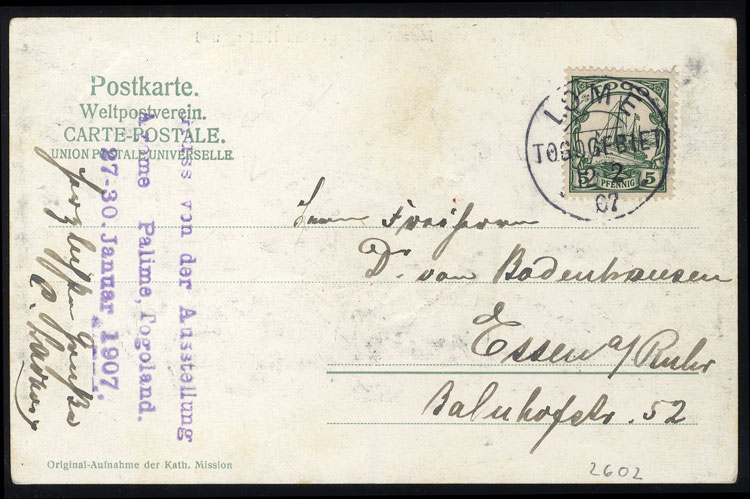 Postkarte.
Weltpostverein.
CARTE-POSTALE.
UNION POSTALE UNIVERSELLE.
TOGO
5 PFENNIG 5
LOME
TOGOGEBIET
2 2
07
Gruss von der Ausstellung
Agome Palime, Togoland.
27-30. Januar 1907.
Herrn Freiherrn
Dr. von Bodenhausen
Essen a/Ruhr
Bahnhofstr. 52
herzlichen Gruß
Original-Aufnahme der Kath. Mission
2602